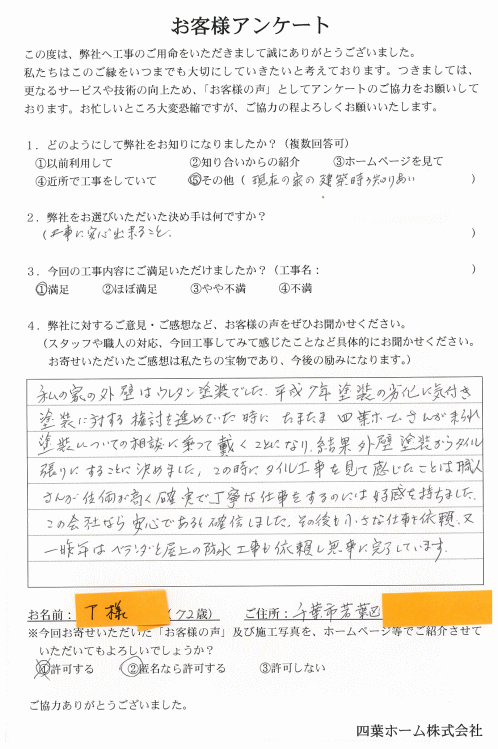 お客様アンケート
この度は、弊社へ工事のご用命をいただきまして誠にありがとうございました。
私たちはこのご縁をいつまでも大切にしていきたいと考えております。つきましては、
更なるサービスや技術の向上ため、「お客様の声」としてアンケートのご協力をお願いして
おります。お忙しいところ大変恐縮ですが、ご協力の程よろしくお願いいたします。
1．どのようにして弊社をお知りになりましたか？（複数回答可）
①以前利用して ②知り合いからの紹介 ③ホームページを見て
④近所で工事をしていて ⑤その他（現在の家の建築時の知りあい）
2．弊社をお選びいただいた決め手は何ですか？
（工事に安心出来ること。）
3．今回の工事内容にご満足いただけましたか？（工事名： ）
①満足 ②ほぼ満足 ③やや不満 ④不満
4．弊社に対するご意見・ご感想など、お客様の声をぜひお聞かせください。
（スタッフや職人の対応、今回工事してみて感じたことなど具体的にお聞かせください。
お寄せいただいたご感想は私たちの宝物であり、今後の励みになります。）
私の家の外壁はウレタン塗装でした。平成7年塗装の劣化に気付き
塗装に対する検討を進めていた時にたまたま四葉ホームさんが来られ
塗装についての相談に乗って戴くことになり、結果外壁塗装からタイル
張りにすることに決めました。この時にタイル工事を見て感じたことは職人
さんが評価が高く確実で丁寧な仕事をするのには好感を持ちました。
この会社なら安心であると確信しました。その後も小さな仕事も依頼、又
一昨年はベランダと屋上の防水工事も依頼し無事に完了しています。
お名前：T様（72歳） ご住所：千葉市若葉区
※今回お寄せいただいた「お客様の声」及び施工写真を、ホームページ等でご紹介させて
いただいてもよろしいでしょうか？
①許可する ②匿名なら許可する ③許可しない
ご協力ありがとうございました。
四葉ホーム株式会社